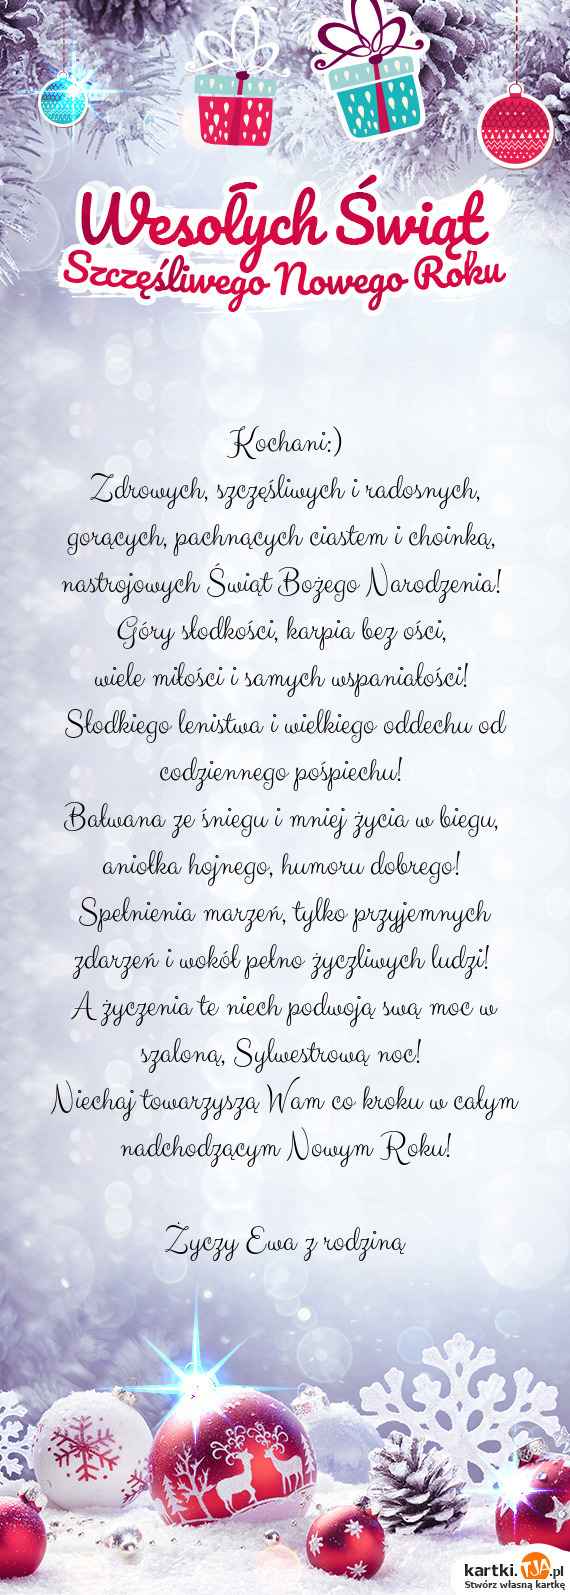 Wesołych Świąt
Szczęśliwego Nowego Roku
Kochani:)
Zdrowych, szczęśliwych i radosnych,
gorących, pachnących ciastem i choinką,
nastrojowych Świąt Bożego Narodzenia!
Góry słodkości, karpia bez ości,
wiele miłości i samych wspaniałości!
Słodkiego lenistwa i wielkiego oddechu od
codziennego pośpiechu!
Bałwana ze śniegu i mniej życia w biegu,
aniołka hojnego, humoru dobrego!
Spełnienia marzeń, tylko przyjemnych
zdarzeń i wokół pełno życzliwych ludzi!
A życzenia te niech podwoją swą moc w
szaloną, Sylwestrową noc!
Niechaj towarzyszą Wam co kroku w całym
nadchodzącym Nowym Roku!
Życzy Ewa z rodziną
kartki.TJA.pl
Stwórz własną kartkę